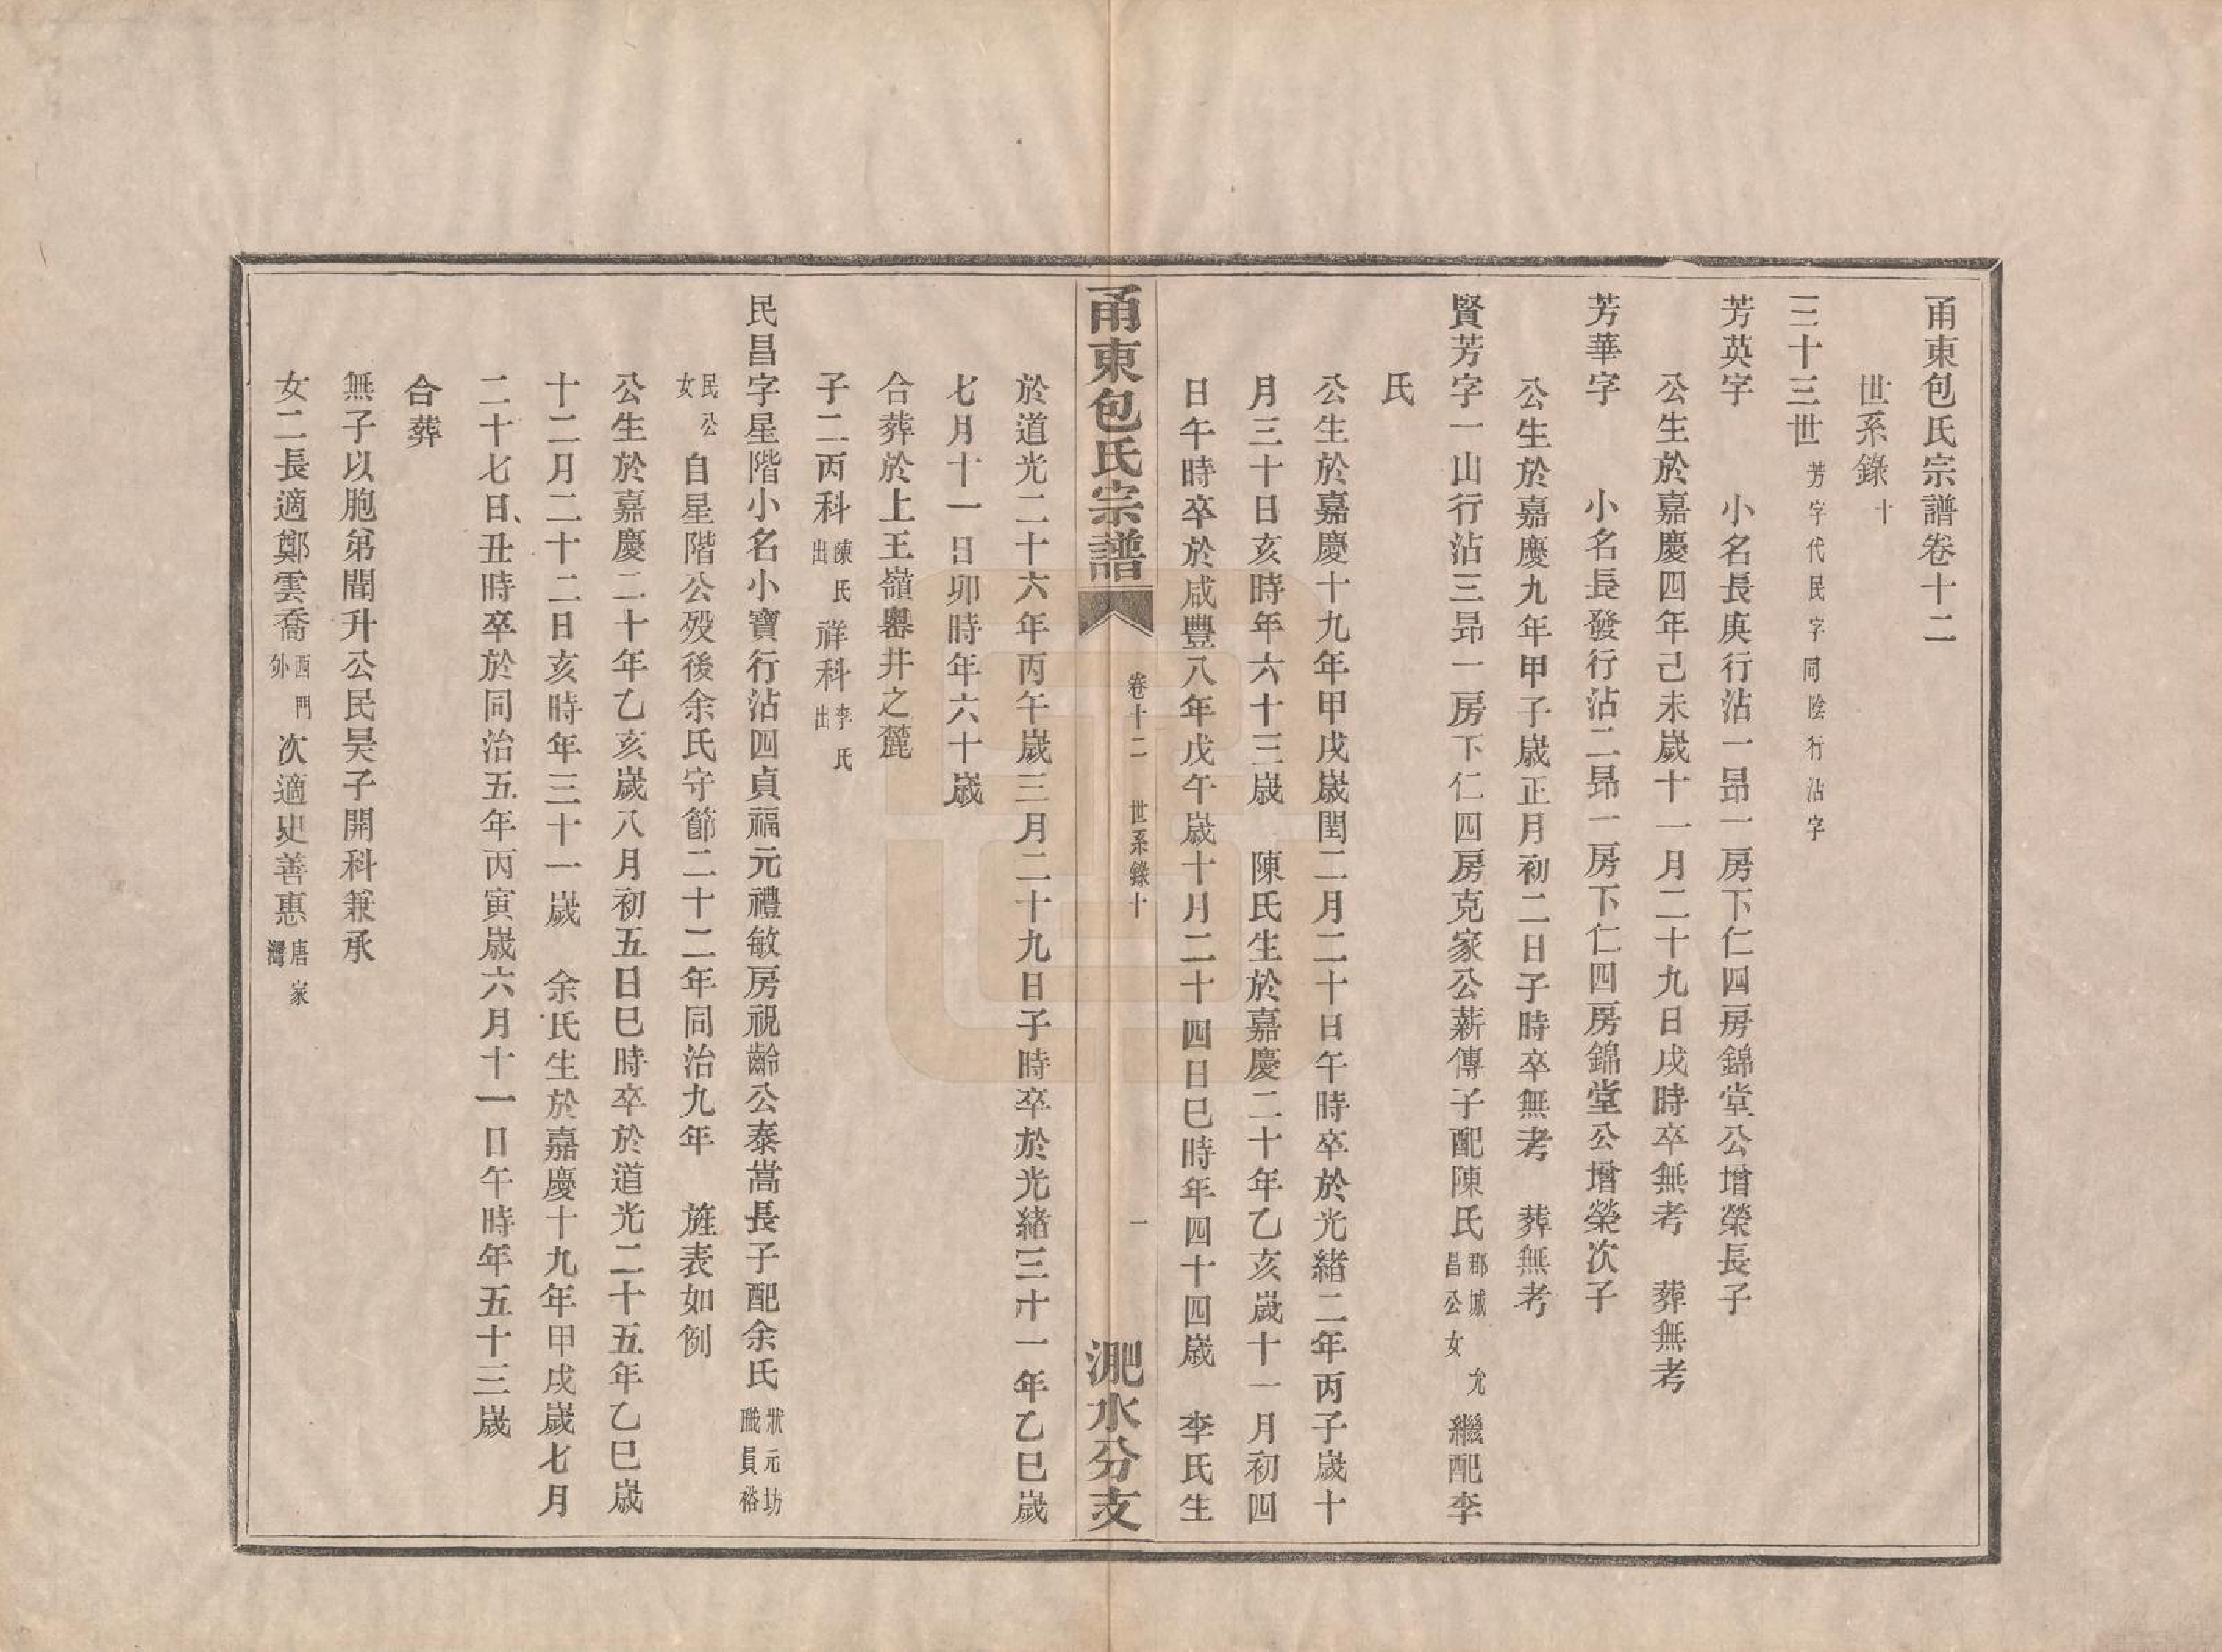 甬東包氏宗譜卷十二
世系錄十
三十三世芳字代民字同陰行沾字
芳英字　小名長庚行沾一昻一房下仁四房錦堂公增榮長子
公生於嘉慶四年己未歲十一月二十九日戌時卒無考　葬無考
芳華字　小名長發行沾二昻一房下仁四房錦堂公增榮次子
公生於嘉慶九年甲子歲正月初二日子時卒無考　葬無考
賢芳字一山行沾三昻一房下仁四房克家公薪傳子配陳氏郡城允昌公女繼配李
氏
公生於嘉慶十九年甲戌歲閏二月二十日午時卒於光緒二年丙子歲十
月三十日亥時年六十三歲　陳氏生於嘉慶二十年乙亥歲十一月初四
日午時卒於咸豐八年戊午歲十月二十四日巳時年四十四歲　李氏生
甬東包氏宗譜　卷十二　世系錄十　一　淝水分支
於道光二十六年丙午歲三月二十九日子時卒於光緒三十一年乙巳歲
七月十一日卯時年六十歲
合葬於上王嶺嶴井之麓
子二丙科陳氏出祥科李氏出
民昌字星階小名小寶行沾四貞福元禮敏房視齡公泰嵩長子配余氏狀元坊職員裕
民公女自星階公歿後余氏守節二十二年同治九年　旌表如例
公生於嘉慶二十年乙亥歲八月初五日巳時卒於道光二十五年乙巳歲
十二月二十二日亥時年三十一歲　余氏生於嘉慶十九年甲戌歲七月
二十七日丑時卒於同治五年丙寅歲六月十一日午時年五十三歲
合葬
無子以胞弟聞升公民昊子開科兼承
女二長適鄭雲喬西門外次適史善惠唐家灣